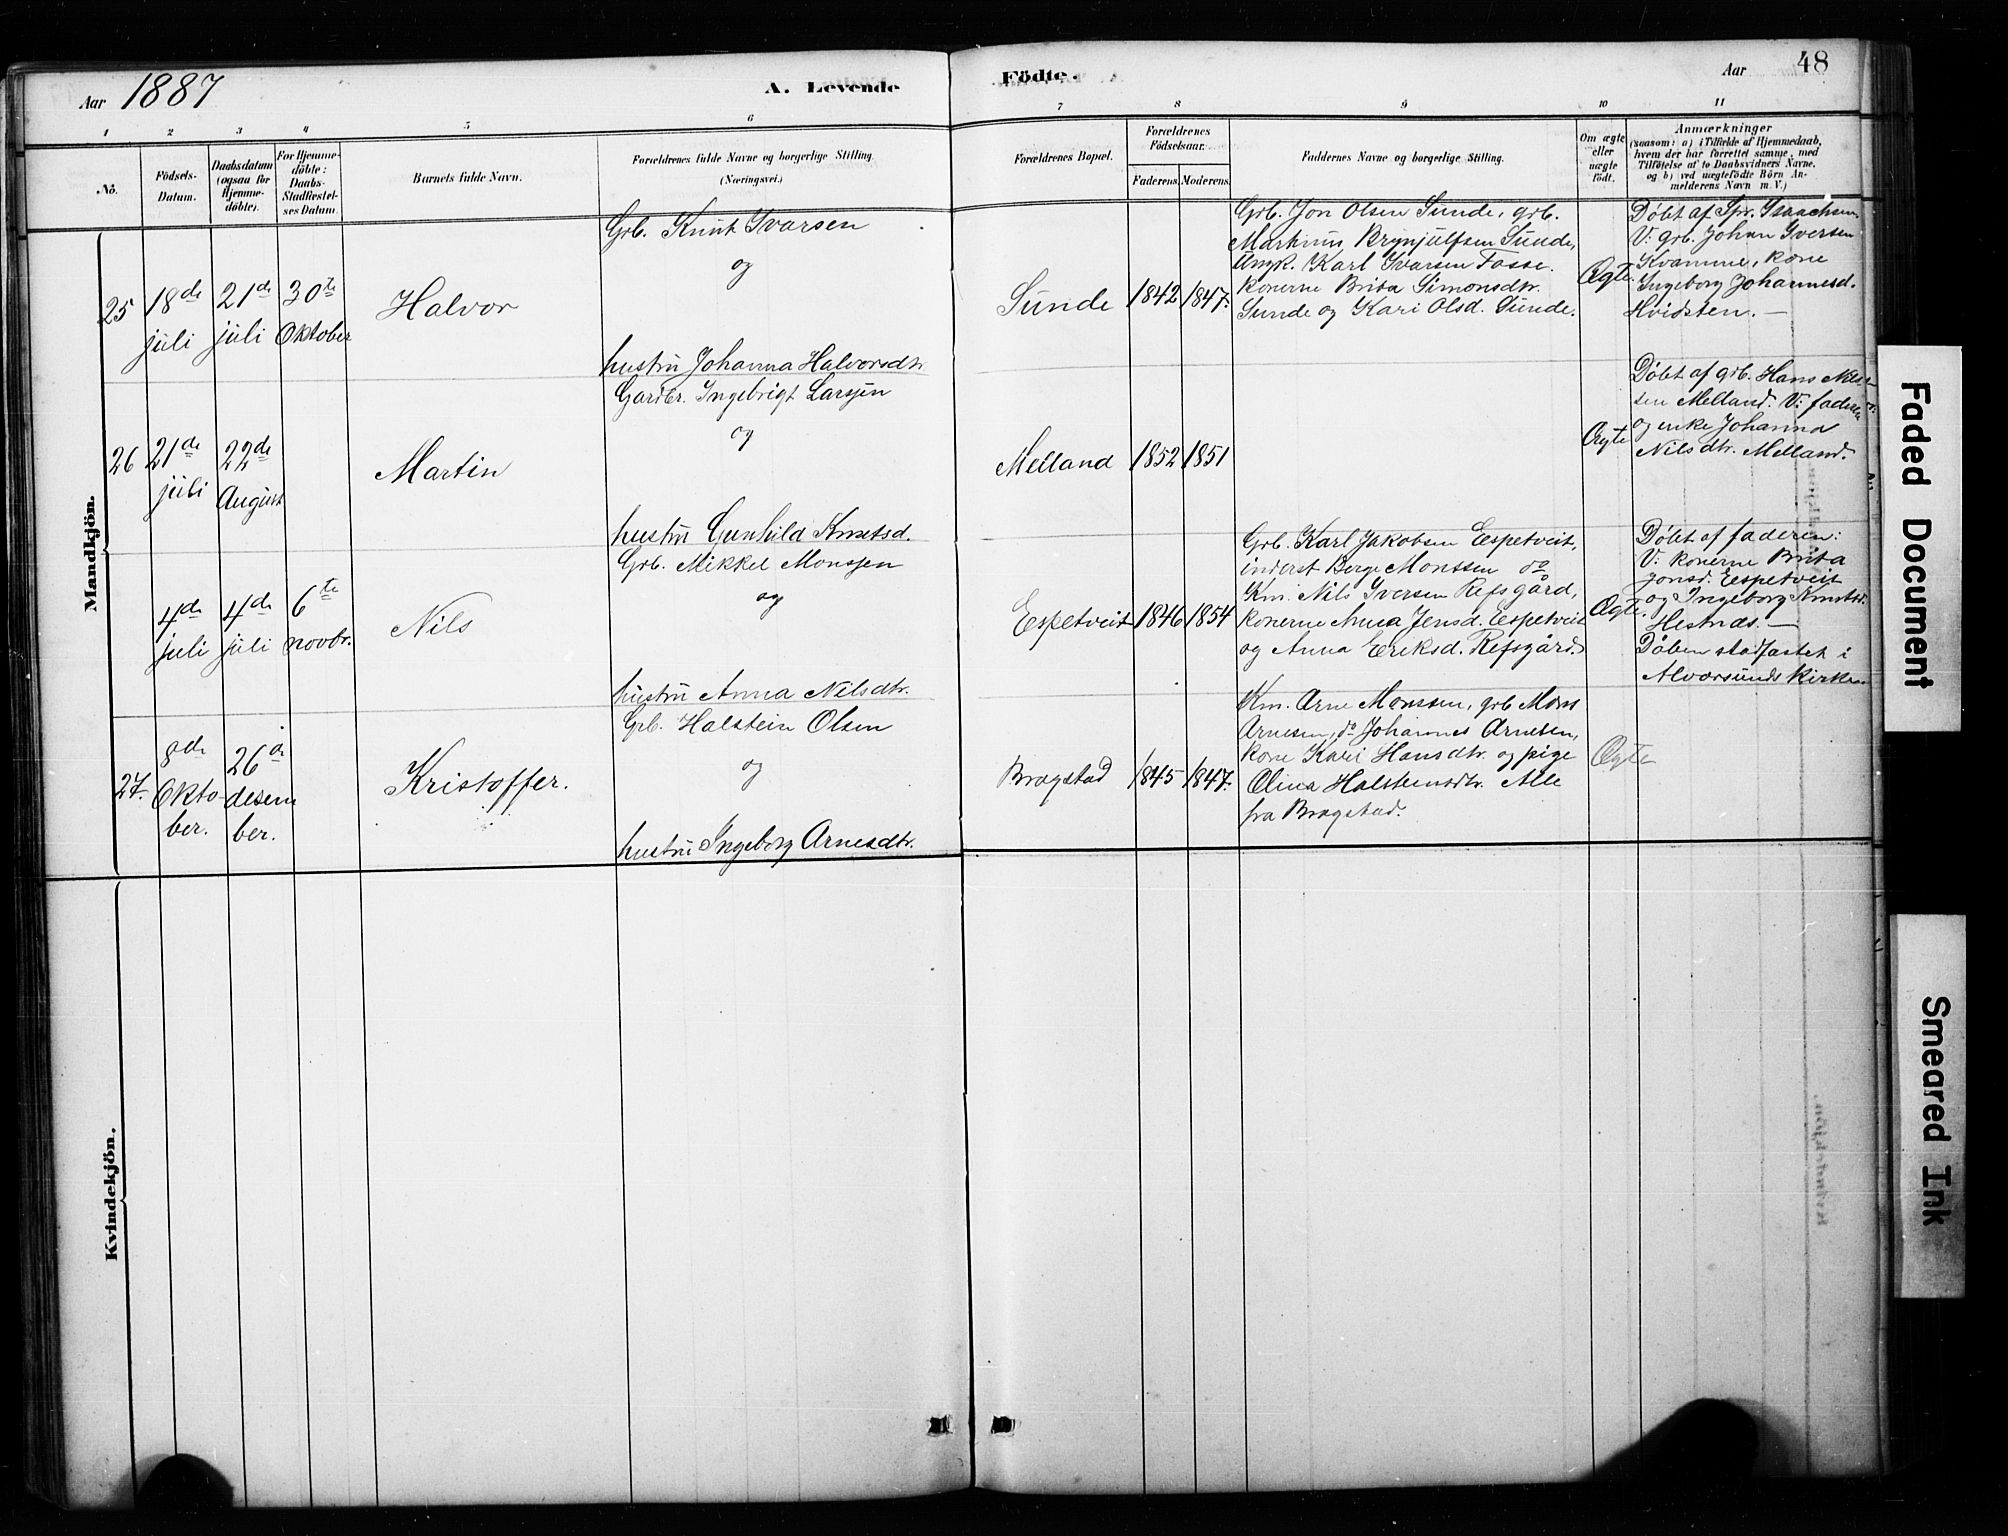 Aar 1887
A. Levende
Födte.
Aar 48
1 2 3 4 5 6 7 8 9 10 11
No.
Födsels-
Datum.
Daabsdatum
(ogsaa for
Hjemme-
döbte).
For Hjemme-
döbte:
Daabs-
Stadfæstel-
ses Datum
Barnets fulde Navn.
Forældrenes fulde Navne og borgerlige Stilling
(Næringsvei.)
Forældrenes Bopæl.
Forældrenes
Födselsaar.
Faderens. Moderens.
Faddernes Navne og borgerlige Stilling.
Om ægte
eller
uægte
födt.
Anmærkninger
(saasom: a) i Tilfælde af Hjemmedaab,
hvem der har forrettet samme, med
Tilföielse af to Daabsvidners Navne.
og b) ved uægtefödte Börn An-
melderens Navn m. V.)
Mandkjön.
25
18de
juli
21de
juli
30te
Oktober
Halvor
Grb. Knut Ivarsen
og
hustru Johanna Halvorsdtr
Sunde
1842
1847.
Grb. Jon Olsen Sunde, grb.
Martinus Brynjulfsen Sunde,
Ungk. Karl Ivarsen Fosse.
konerne Brita Simonsdtr.
Sunde og Kari Olsd. Sunde.
Ægte.
Döbt af Spr. Isaachsen.
V: grb. Johan Iversen
Kvamme, kone
Ingeborg Johannesd.
Hvidsten. —
26
21de
juli
22de
August
Martin
Gardbr. Ingebrigt Larsen
og
hustru Gunhild Knutsd.
Melland
1852
1851
Ægte
Döbt af grb. Hans Nils-
sen Melland. V: faderen
og enke Johanna
Nilsdtr. Melland.
4de
juli
4de
juli
6te
novbr.
Nils
Grb. Mikkel Monsen
og
hustru Anna Nilsdtr.
Espetveit
1846
1854
Grb. Karl Jakobsen Espetveit,
inderst Berge Monssen do
Km. Nils Iversen Refsgård,
konerne Anna Jensd. Espetveit
og Anna Eriksd. Refsgård.
Ægte.
Döbt af faderen:
V: konerne Brita
Jonsd. Espetveit
og Ingeborg Knutsd.
Hestnds. —
Dåben stadfæstet i
Alversunds kirke.
27.
8de
Okto-
ber.
26de
desem
ber.
Kristoffer.
Grb. Halstein Olsen
og
hustru Ingeborg Arnesdtr.
Brogstad
1845
1847.
Km. Arne Monssen, grb Mons
Arnesen, do Johannes Arnesen,
kone Kari Hansdtr. og pige
Olina Halsteinsdtr. Alle
fra Brogstad.
Ægte
Kvindekjön.
Faded Document
Smeared Ink